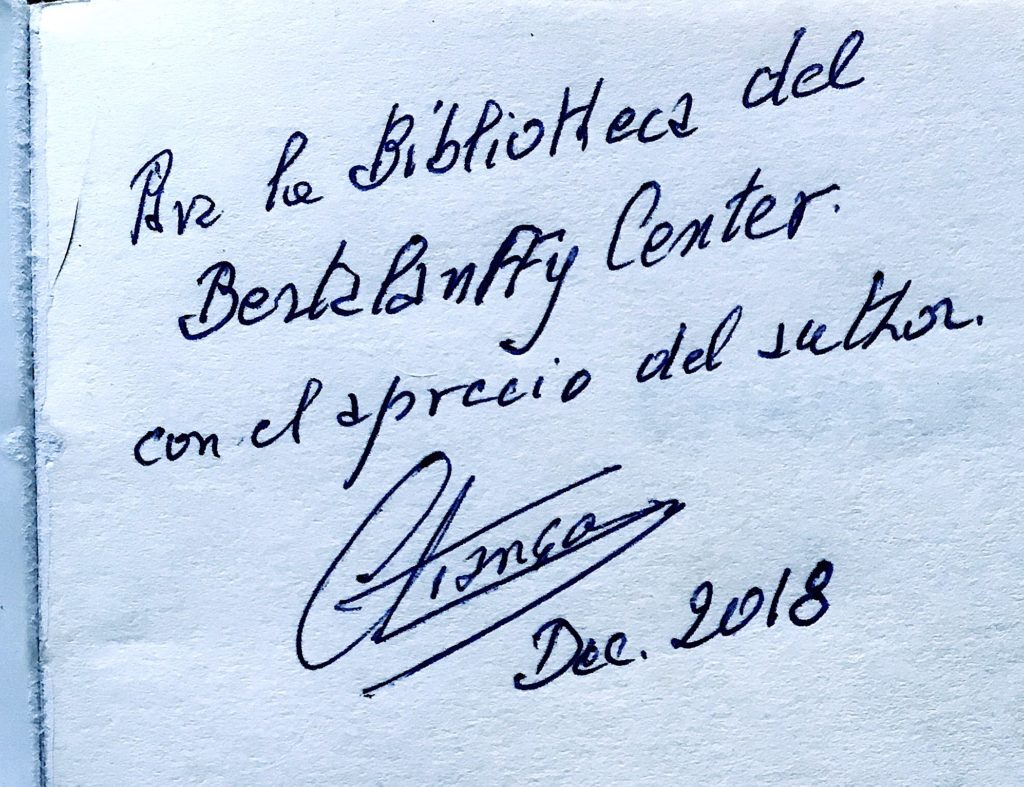 Para la Bibliotteca del
Bertalanffy Center.
con el aprecio del author.
Dec. 2018